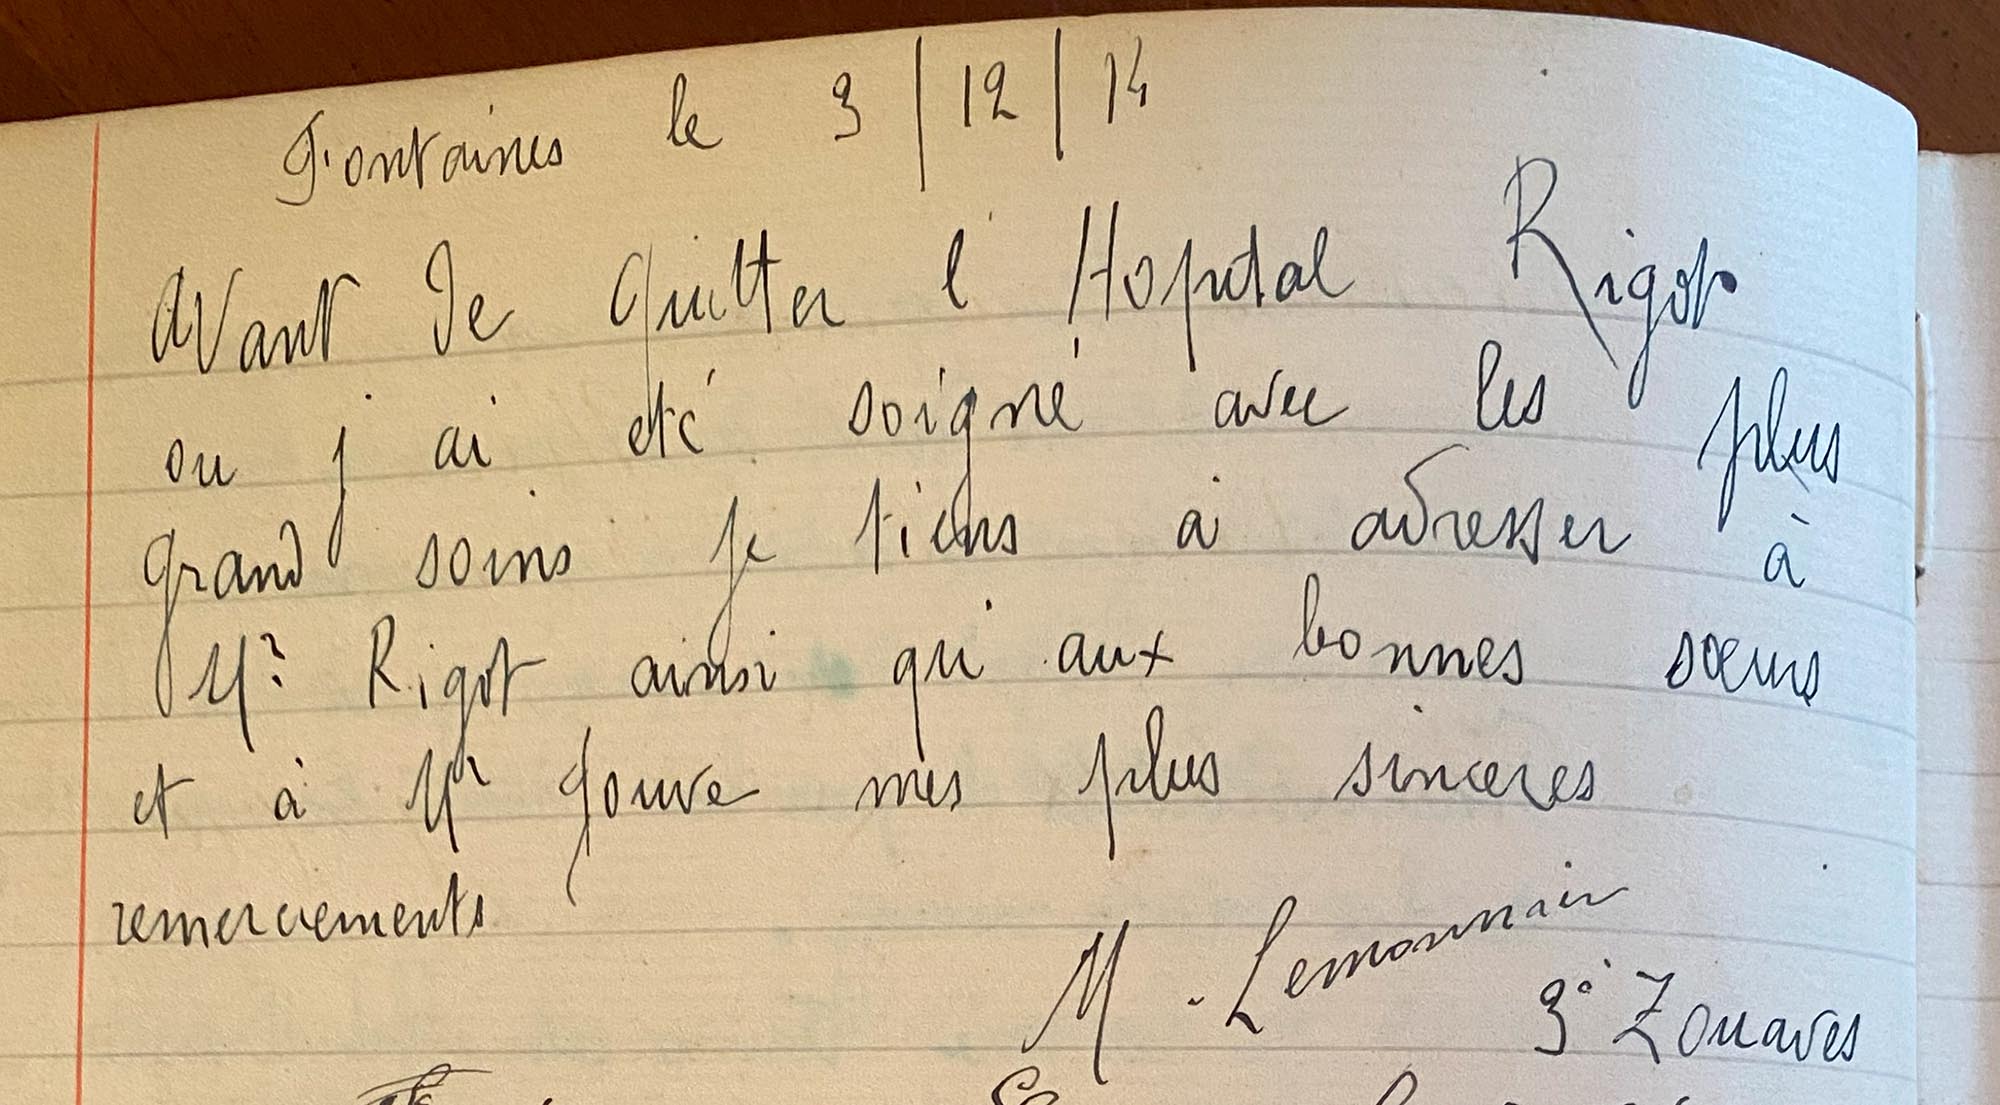 Fontaines le 3 | 12 | 14
Avant de quitter l'Hopital Rigot
ou j'ai eté soigné avec les plus
grand soins je tiens à adresser à
Mr Rigot ainsi qu'aux bonnes sœurs
et à Mr Jouve mes plus sinceres
remerciements
M. Lemonnier
3e Zouaves